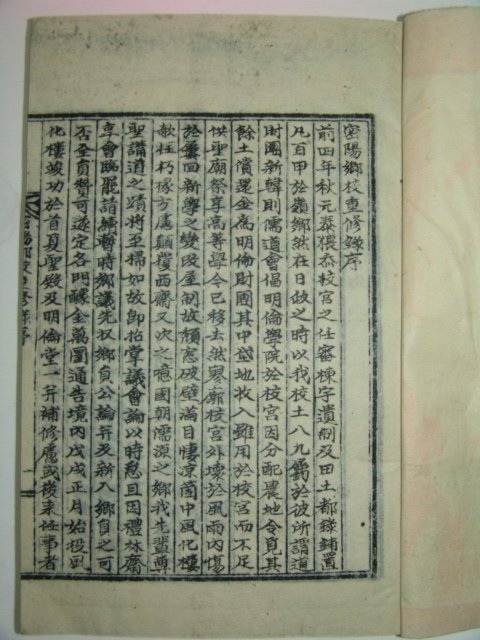 密陽鄉校重修錄序
前四年秋元泰猥忝校宮之任審棟宇遺制及田土都錄鋪置
凡百甲於嶺鄉然在日政之時以我校土八九屬於彼所謂道
財團新韓則儒道會倡明倫學院於校宮因分配農地令覓其
餘土償還金爲明倫財團其中垈地收入雖用於校宮而不足
供聖廟祭享高等學令已移去然寥廓校宮外壞於風雨內傷
於屢回新學之變改屋制故頹窓破壁滿目悽凉箇中風化樓
欹柱朽椽方慮顚覆西齋又次之噫國朝儒深之鄉我先輩尊
聖講道之蹟將至掃如故卽招掌議會論以時愁且因禮林齋
享會臨罷請繼暫時鄉議先收鄉員公論弁及新入鄉員之可
否至員贊可遂定各門醵金萬圜通告境內戊戌正月始役風
化樓竣功於首夏聖殿及明倫堂一弁補修慮或後來任事者